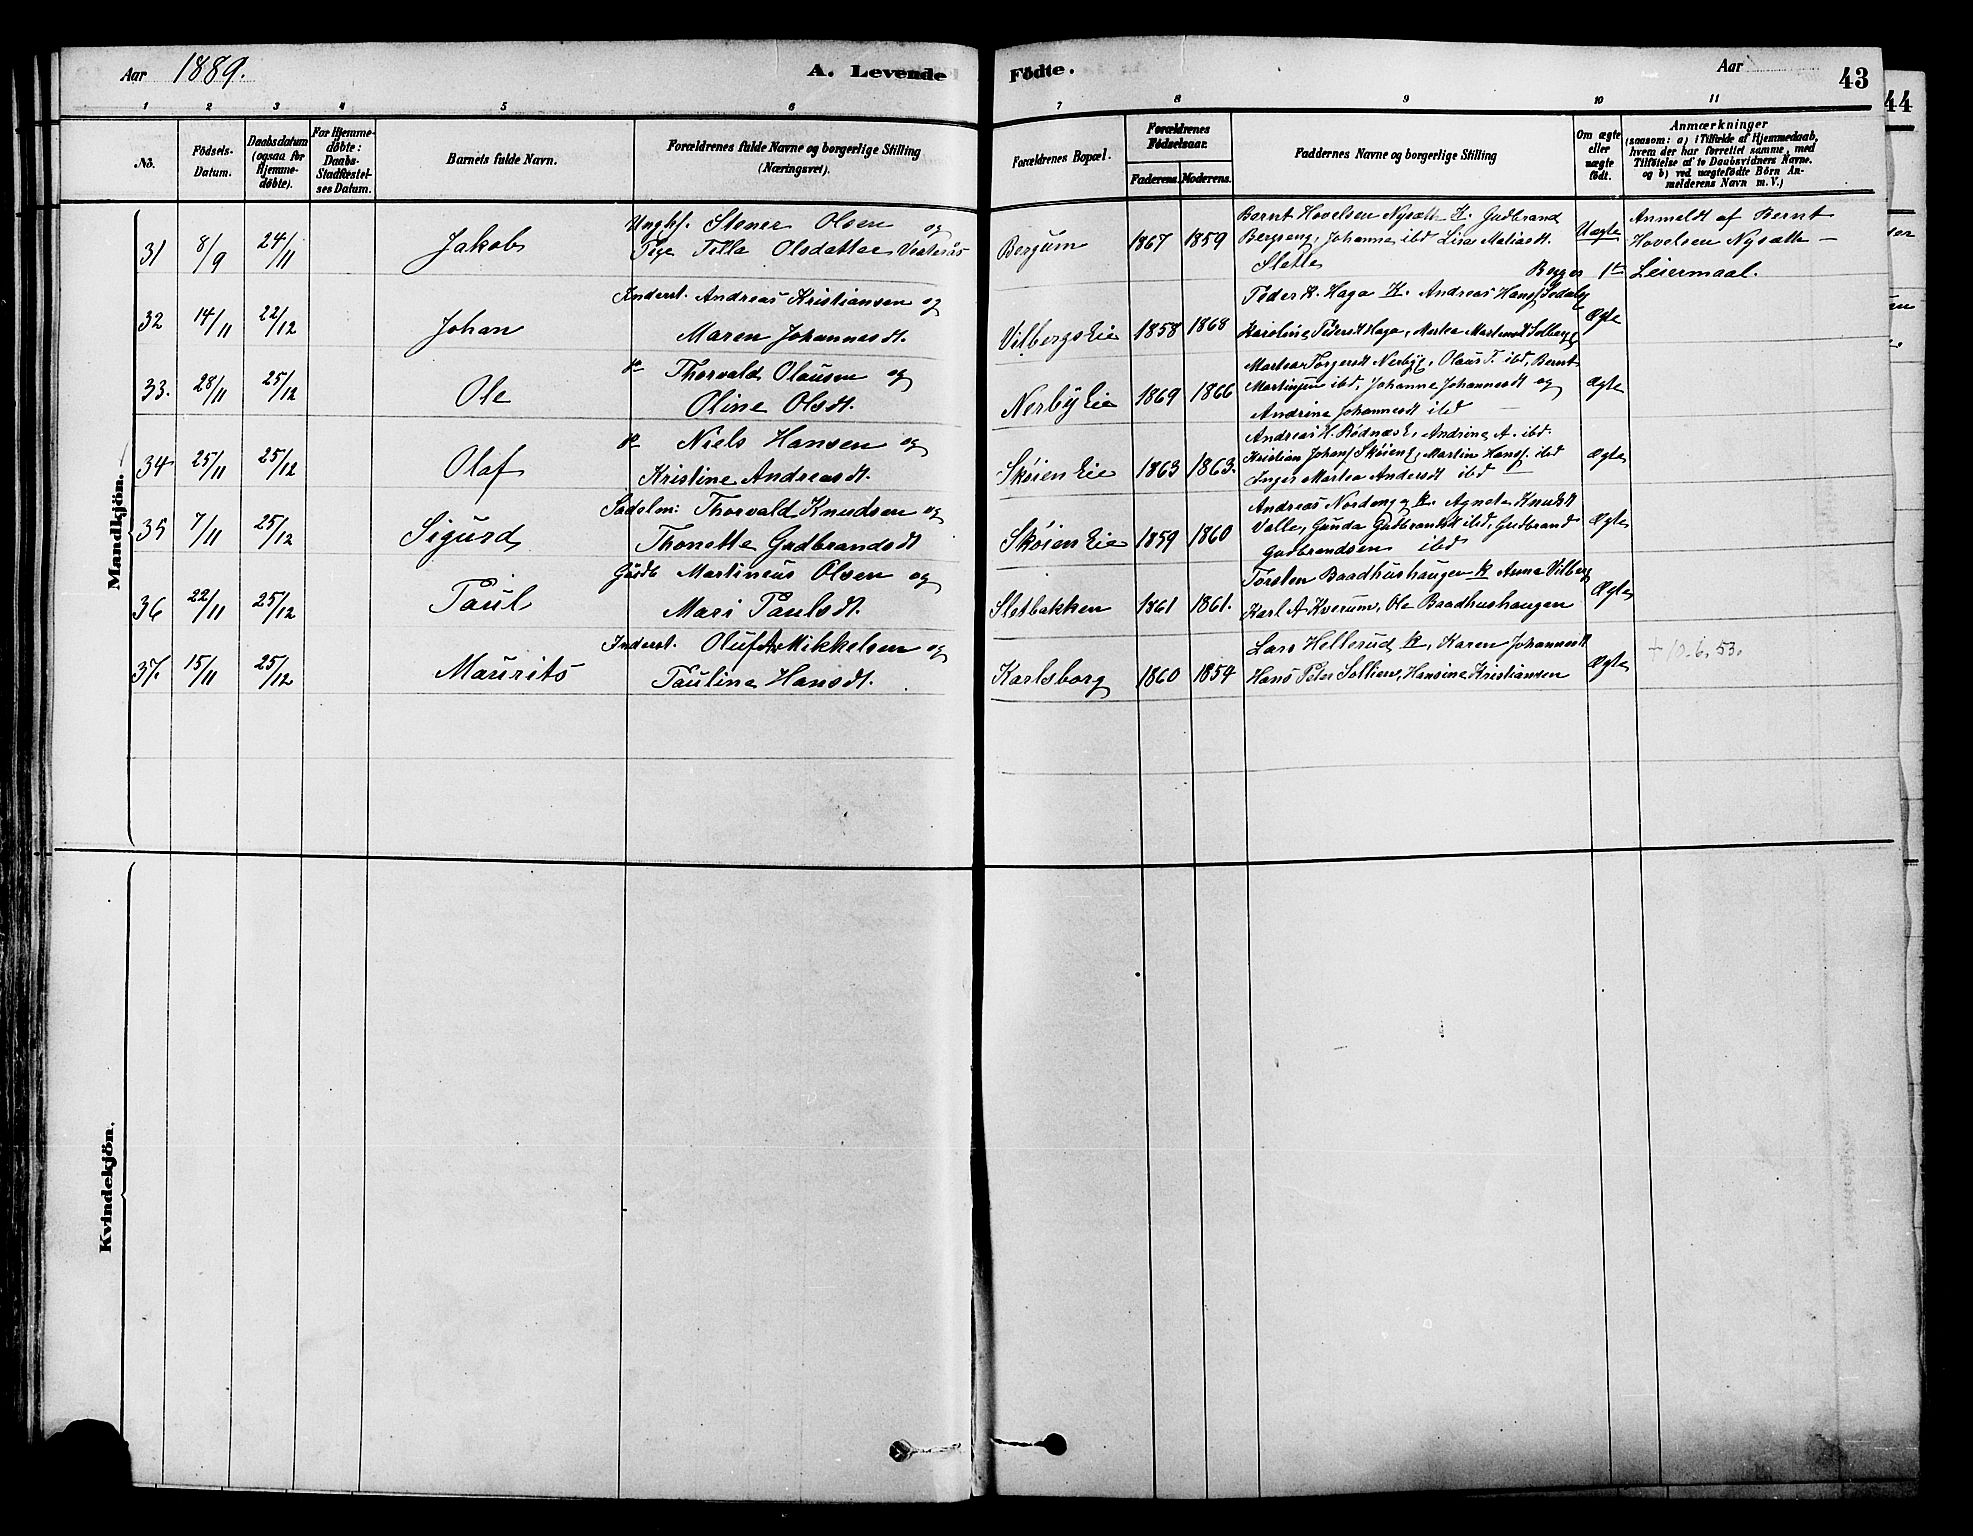 Aar 1889.
A. Levende
Födte.
Aar
43
44
1 2 3 4 5 6 7 8 9 10 11
No.
Födsels-Datum.
Daabsdatum (ogsaa for Hjemmedøbte).
For Hjemmedøbte: Daabs-Stadfæstelses Datum.
Barnets fulde Navn.
Forældrenes fulde Navne og borgerlige Stilling (Næringsvei).
Forældrenes Bopæl.
Forældrenes Födselsaar.
Faderens. Moderens.
Faddernes Navne og borgerlige Stilling
Om ægte eller uægte födt.
Anmærkninger
(saasom: a) i Tilfælde af Hjemmedaab, hvem der har forrettet samme, med Tilföielse af to Daabsvidners Navne, og b) ved uægtefödte Börn Anmelderens Navn m. V.)
Mandkjön.
31 8/9 24/11 Jakob
Ungkf. Stener Olsen og
Pige Tilla Olsdatter
Bergum 1867 1859
Bernt Hovelsen Nysæth K. Gudbrand
Bergseng, Johanne ibd Lisa Matiasdt.
Slette
Uægte
Anmeldt af Bernt
Hovelsen Nysæth –
1te Leiermaal.
32 14/11 22/12 Johan
Inderst. Andreas Kristiansen og
Maren Johannesdt.
Vilbergs Eie 1858 1868
Peder K. Haga K. Andreas Hans
Karoline Pedersdt Haga, Martea
Ægte
33. 28/11 25/12 Ole
do Thorvald Olausen og
Oline Olsdt.
Nerby Eie 1869 1866
Martea Torgersdt Nerby, Olaus T. ibd, Bernt
Martinsen ibd, Johanne Johannesdt og
Andrine Johannesdt ibd
Ægte
34 25/11 25/12 Olaf
do Niels Hansen og
Kristine Andreasdt.
Skøien Eie 1863 1863.
Andreas H. Rødnæs E, Andrine A. ibd.
Kristian Johans Skøien E, Martin Hans. ibd
Inger Martea Andersdt ibd
Ægte
35 7/11 25/12 Sigurd
Sadelm: Thorvald Knudsen og
Thonette Gudbrandsdt
Skøien Eie 1859 1860
Andreas Nordeng K. Agnete Knudsdt
Valle, Gunda Gudbrandsdt ibd, Gudbrand
Gudbrandsen ibd
Ægte
36 22/11 25/12 Paul
Gdb Martineus Olsen og
Mari Paulsdt.
Sletbakken 1861 1861.
Torsten Baadhushaugen K Anna Vilberg
Karl A Kverum, Ole Baadhushaugen
Ægte
37. 15/11 25/12 Maurits
Inderst. Oluf Mikkelsen og
Pauline Hansdt.
Karlsborg 1860 1854
Lars Hellerud K, Karen Johannesdt
Hans Peter Sollien, Hansine Kristiansen
Ægte
† 10.6.53.
Kvindekjön.